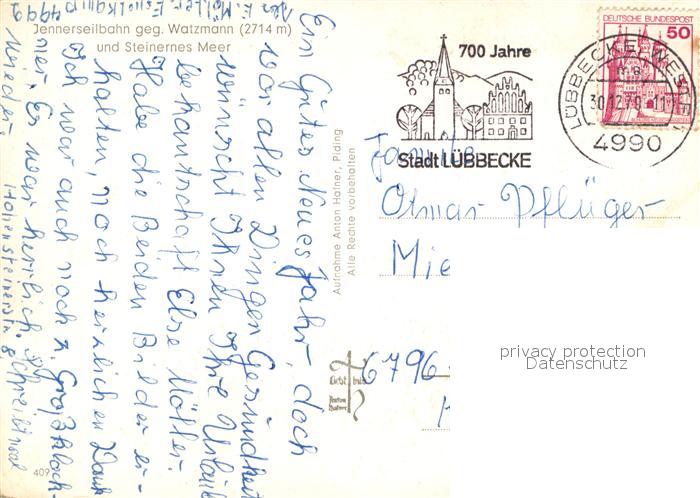 Jennerseilbahn geg. Watzmann (2714 m)
und Steinernes Meer
Ein Gutes Neues Jahr, doch
vor allen Dingen Gesundheit
wünscht Ihnen Ihre Urlaub
bekantschaft Else Möller.
Habe die Beiden Bilder er-
halten, noch herzlichen Dank
Ich war auch noch z. Großklock-
ner. Es war herrlich.
wieder.
Schreibt mal
Abs. E. Möller Espelkamp 4992
Aufnahme Anton Hafner, Piding
Alle Rechte vorbehalten
409
700 Jahre
Stadt LÜBBECKE
LÜBBECKE, WESTF
30.12.79.-11
4990
DEUTSCHE BUNDESPOST
50
Familie
Otmar Pflüger
Mie
6796
privacy protection
Datenschutz